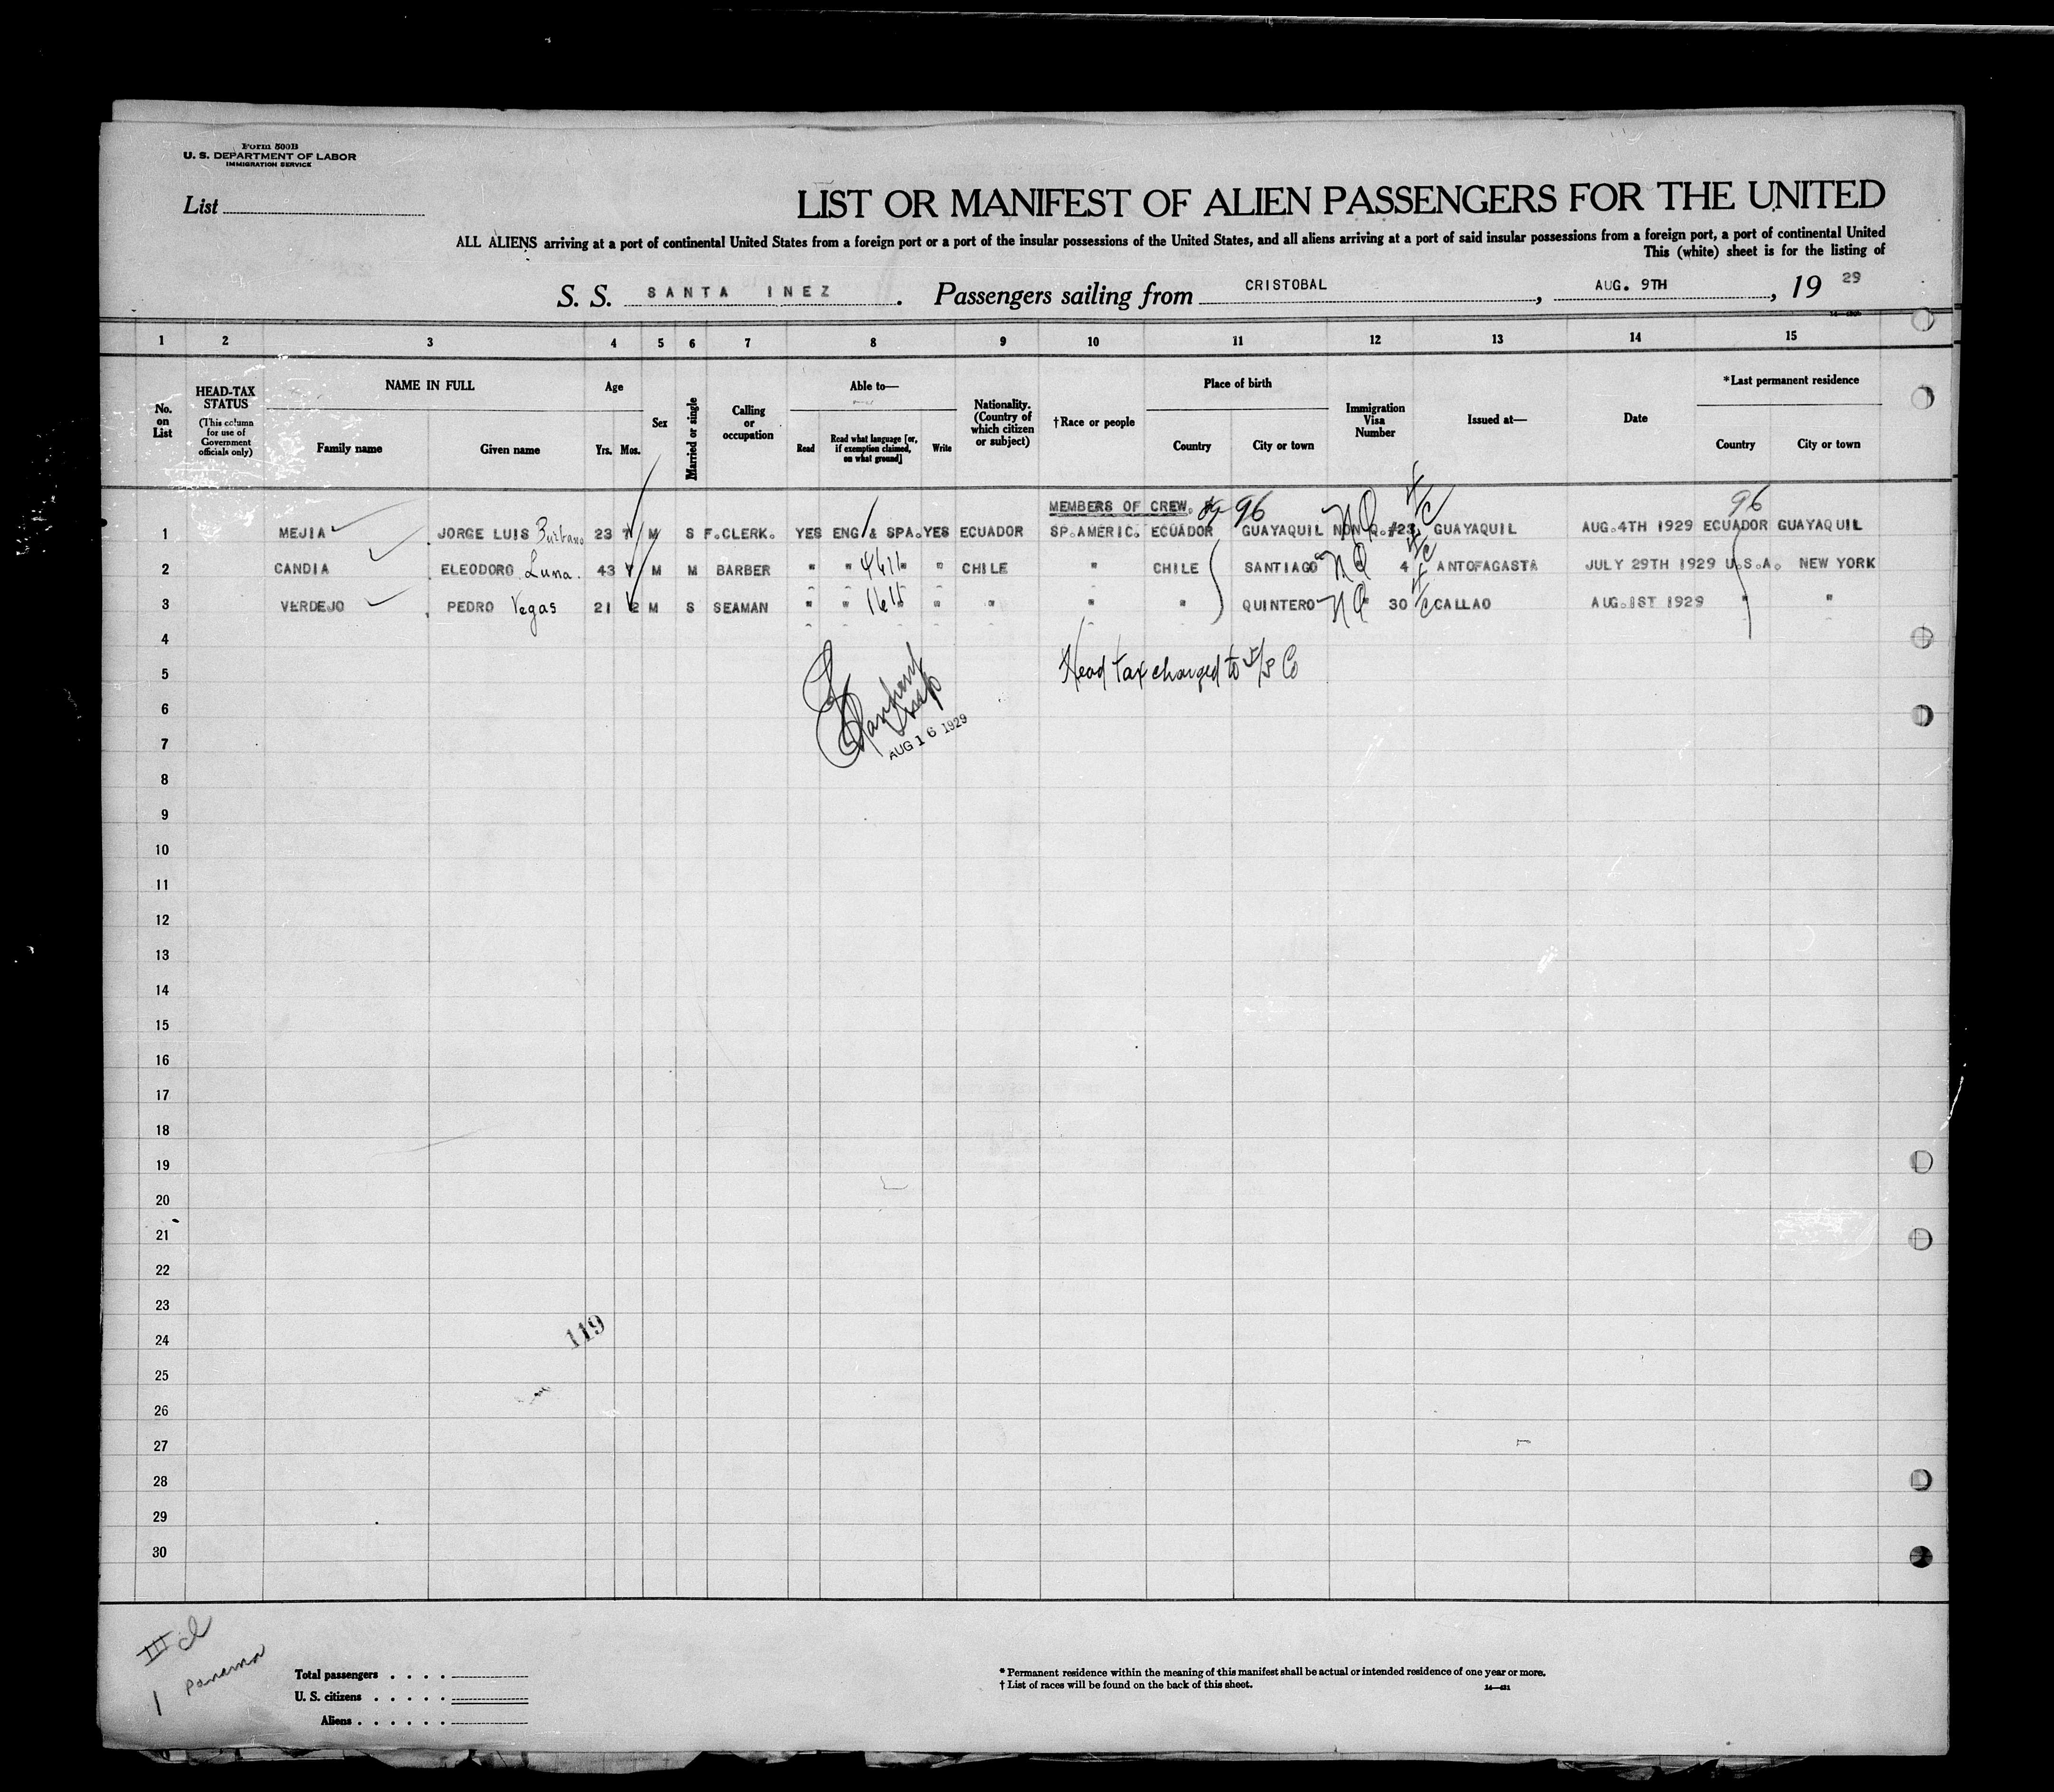 Form 500B
U. S. DEPARTMENT OF LABOR
IMMIGRATION SERVICE
List
LIST OR MANIFEST OF ALIEN PASSENGERS FOR THE UNITED
ALL ALIENS arriving at a port of continental United States from a foreign port or a port of the insular possessions of the United States, and all aliens arriving at a port of said insular possessions from a foreign port, a port of continental United
This (white) sheet is for the listing of
S. S. SANTA INEZ. Passengers sailing from CRISTOBAL, AUG. 9TH, 19 29
1 2 3 4 5 6 7 8 9 10 11 12 13 14 15
No. on List
HEAD-TAX STATUS
(This column for use of Government officials only)
NAME IN FULL
Family name Given name
Age
Yrs. Mos.
Sex
Married or single
Calling or occupation
Able to—
Read
Read what language [or, if exemption claimed, on what ground]
Write
Nationality. (Country of which citizen or subject)
†Race or people
Place of birth
Country City or town
Immigration Visa Number
Issued at—
Date
*Last permanent residence
Country City or town
MEMBERS OF CREW. 96 96
1 MEJIA JORGE LUIS Burbano 23 M S F.CLERK. YES ENG & SPA. YES ECUADOR SP.AMERIC. ECUADOR GUAYAQUIL NON Q. #23 NQ GUAYAQUIL AUG.4TH 1929 ECUADOR GUAYAQUIL
2 CANDIA ELEODORO Luna. 43 M M BARBER " " " CHILE " CHILE SANTIAGO NQ 4 ANTOFAGASTA JULY 29TH 1929 U.S.A. NEW YORK
3 VERDEJO PEDRO Vegas 21 M S SEAMAN " " " " " " QUINTERO NQ 30 CALLAO AUG.1ST 1929 " "
4
5 Head tax charged to S/S Co
6
7 AUG 16 1929
8
9
10
11
12
13
14
15
16
17
18
19
20
21
22
23
24 119
25
26
27
28
29
30
III cl
1 Panama
Total passengers . . . .
U. S. citizens . . . . .
Aliens . . . . . .
* Permanent residence within the meaning of this manifest shall be actual or intended residence of one year or more.
† List of races will be found on the back of this sheet.